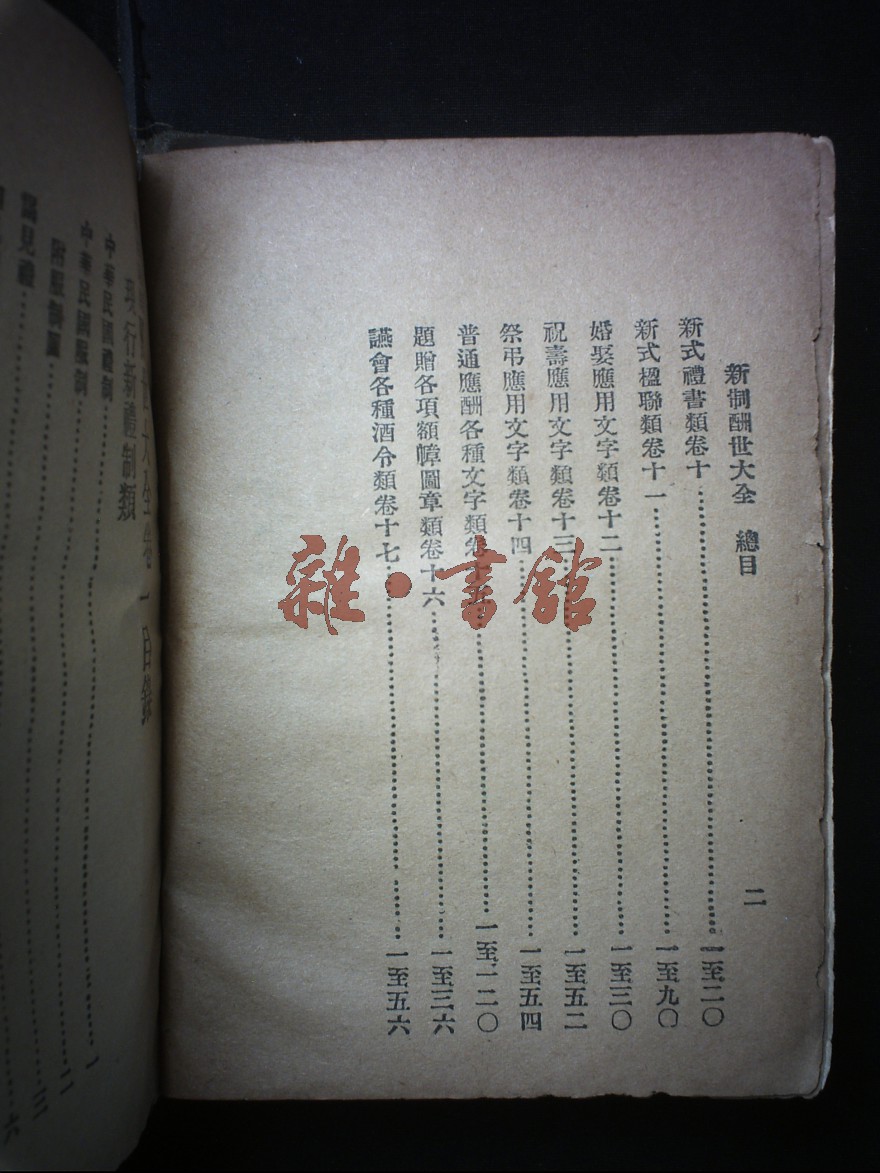 新制酬世大全　總目
二
新式禮書類卷十……一至二〇
新式楹聯類卷十一……一至九〇
婚娶應用文字類卷十二……一至三〇
祝壽應用文字類卷十三……一至五二
祭弔應用文字類卷十四……一至五四
普通應酬各種文字類卷十五……一至一二〇
題贈各項額幛圖章類卷十六……一至三六
讌會各種酒令類卷十七……一至五六
雜·書館
世大全卷一目錄
現行新禮制類
中華民國禮制……一
中華民國服制……二
附服制圖……三
謁見禮……六